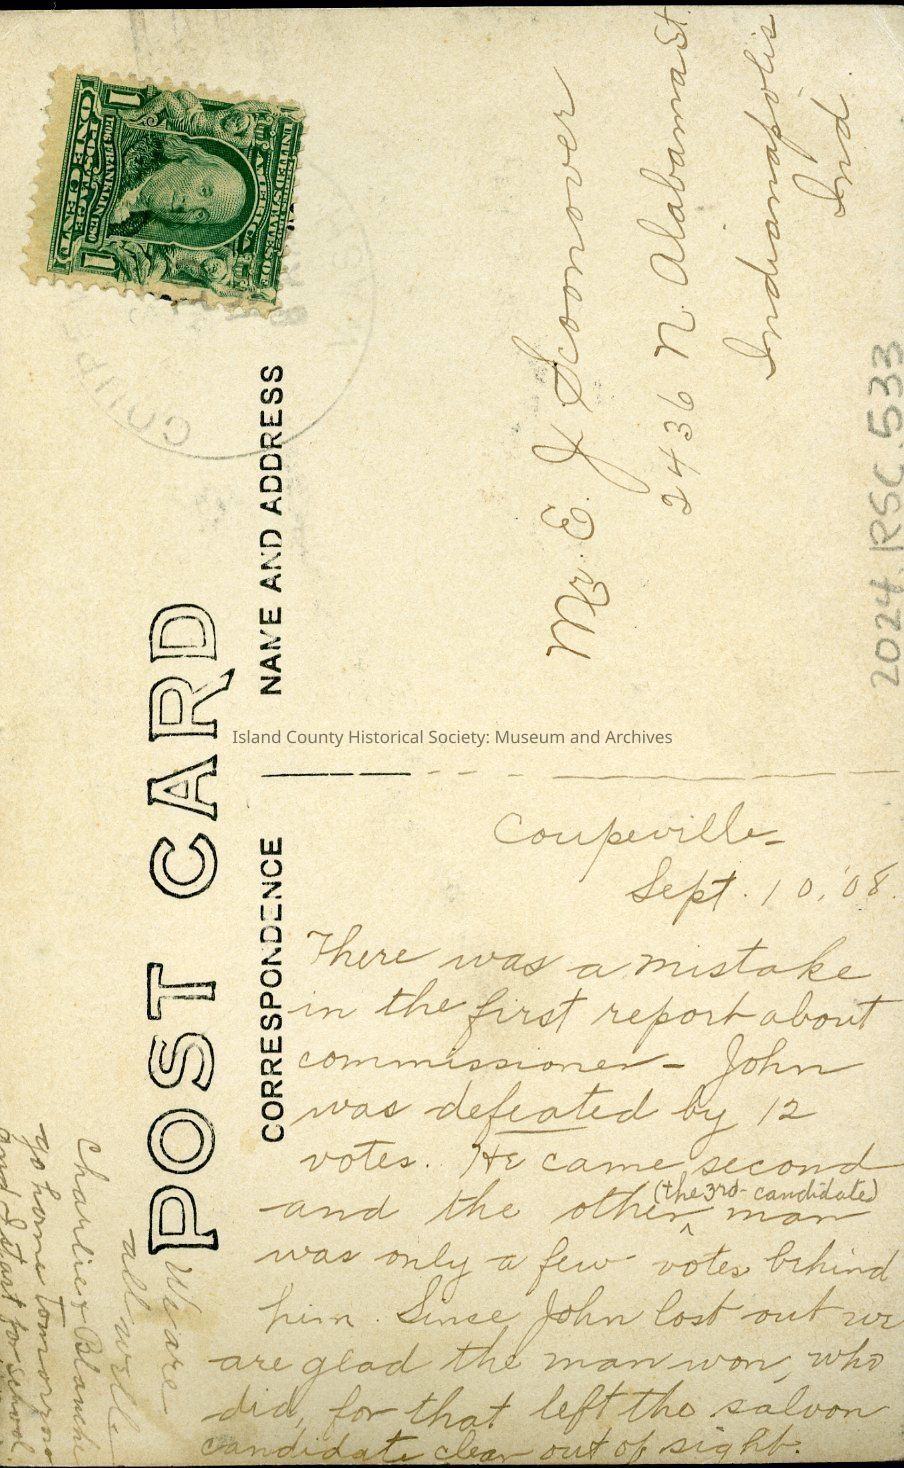 POST CARD
CORRESPONDENCE
NAME AND ADDRESS
UNITED STATES OF
AMERICA
1 1
FRANKLIN
POSTAGE
ONE CENT
COUP
Mr. E. J
2436 N Alabama St.
Indianapolis
Ind.
2024.RSC.533
Island County Historical Society: Museum and Archives
Coupeville -
Sept. 10, '08.
There was a mistake
in the first report about
commissioner - John
was defeated by 12
votes. He came second
(the 3rd candidate)
and the other man
was only a few votes behind
him. Since John lost out we
are glad the man won, who
did, for that left the saloon
candidate clear out of sight.
We are
all well
Charlie & Blanche
go home tomorrow
and I start for school